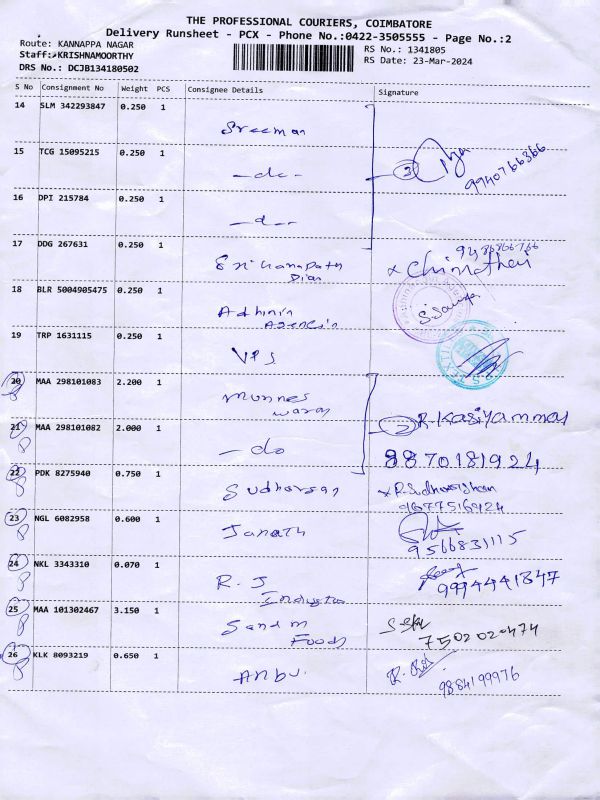 THE PROFESSIONAL COURIERS, COIMBATORE
Delivery Runsheet - PCX - Phone No.:0422-3505555 - Page No.:2
Route: KANNAPPA NAGAR
RS No.: 1341805
Staff:KRISHNAMOORTHY
RS Date: 23-Mar-2024
DRS No.: DCJB134180502
S No Consignment No Weight PCS Consignee Details Signature
14 SLM 342293847 0.250 1
Sreeman
15 TCG 15095215 0.250 1
-do-
3
9940766366
16 DPI 215784 0.250 1
-do-
17 DDG 267631 0.250 1
Sri Ganapathy
18 BLR 5004905475 0.250 1
Adhinin
Agencies
19 TRP 1631115 0.250 1
VPS
20 MAA 298101083 2.200 1
8
Munnes
waran
21 MAA 298101082 2.000 1
8
-do
2 R. Kasiyammal
8870181924
22 PDK 8275940 0.750 1
8
Sudharsan
9677516924
23 NGL 6082958 0.600 1
8
Janath
9566831115
24 NKL 3343310 0.070 1
8
R. J
Industries
9994441847
25 MAA 101302467 3.150 1
8
Sand m
Foods
7502020474
26 KLK 8093219 0.650 1
8
Anbu
9884199976